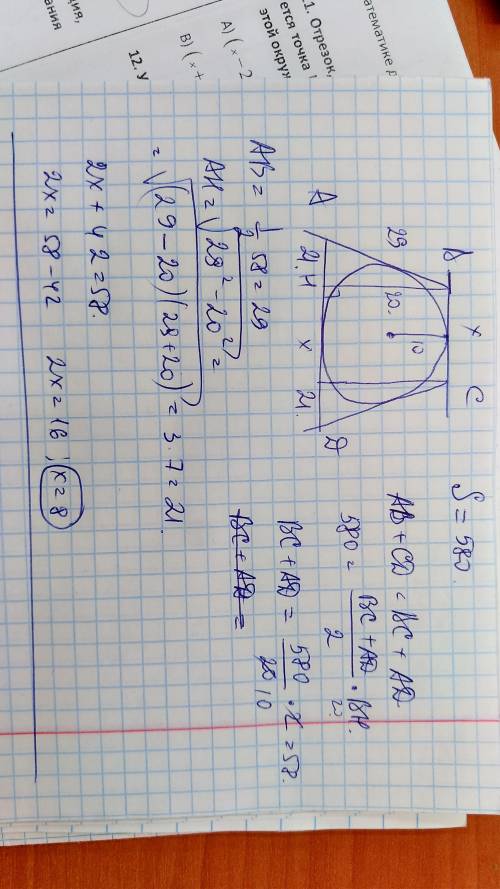 математике
1. Отрезок,
ется точка
этой окруж
А) (x - 2
В) (x +
12. У
B x C
29 20. 10
A 21. H x 21. D
S = 580.
AB + CD = BC + AD.
580 = \frac{BC + AD}{2} · BH.
20.
BC + AD = \frac{580}{20 10} · 2 = 58.
BC + AD =
AB = \frac{1}{2} 58 = 29
AH = √(29² - 20²) =
= √((29 - 20)(29 + 20)) = 3 · 7 = 21.
2x + 42 = 58.
2x = 58 - 42 2x = 16; x = 8